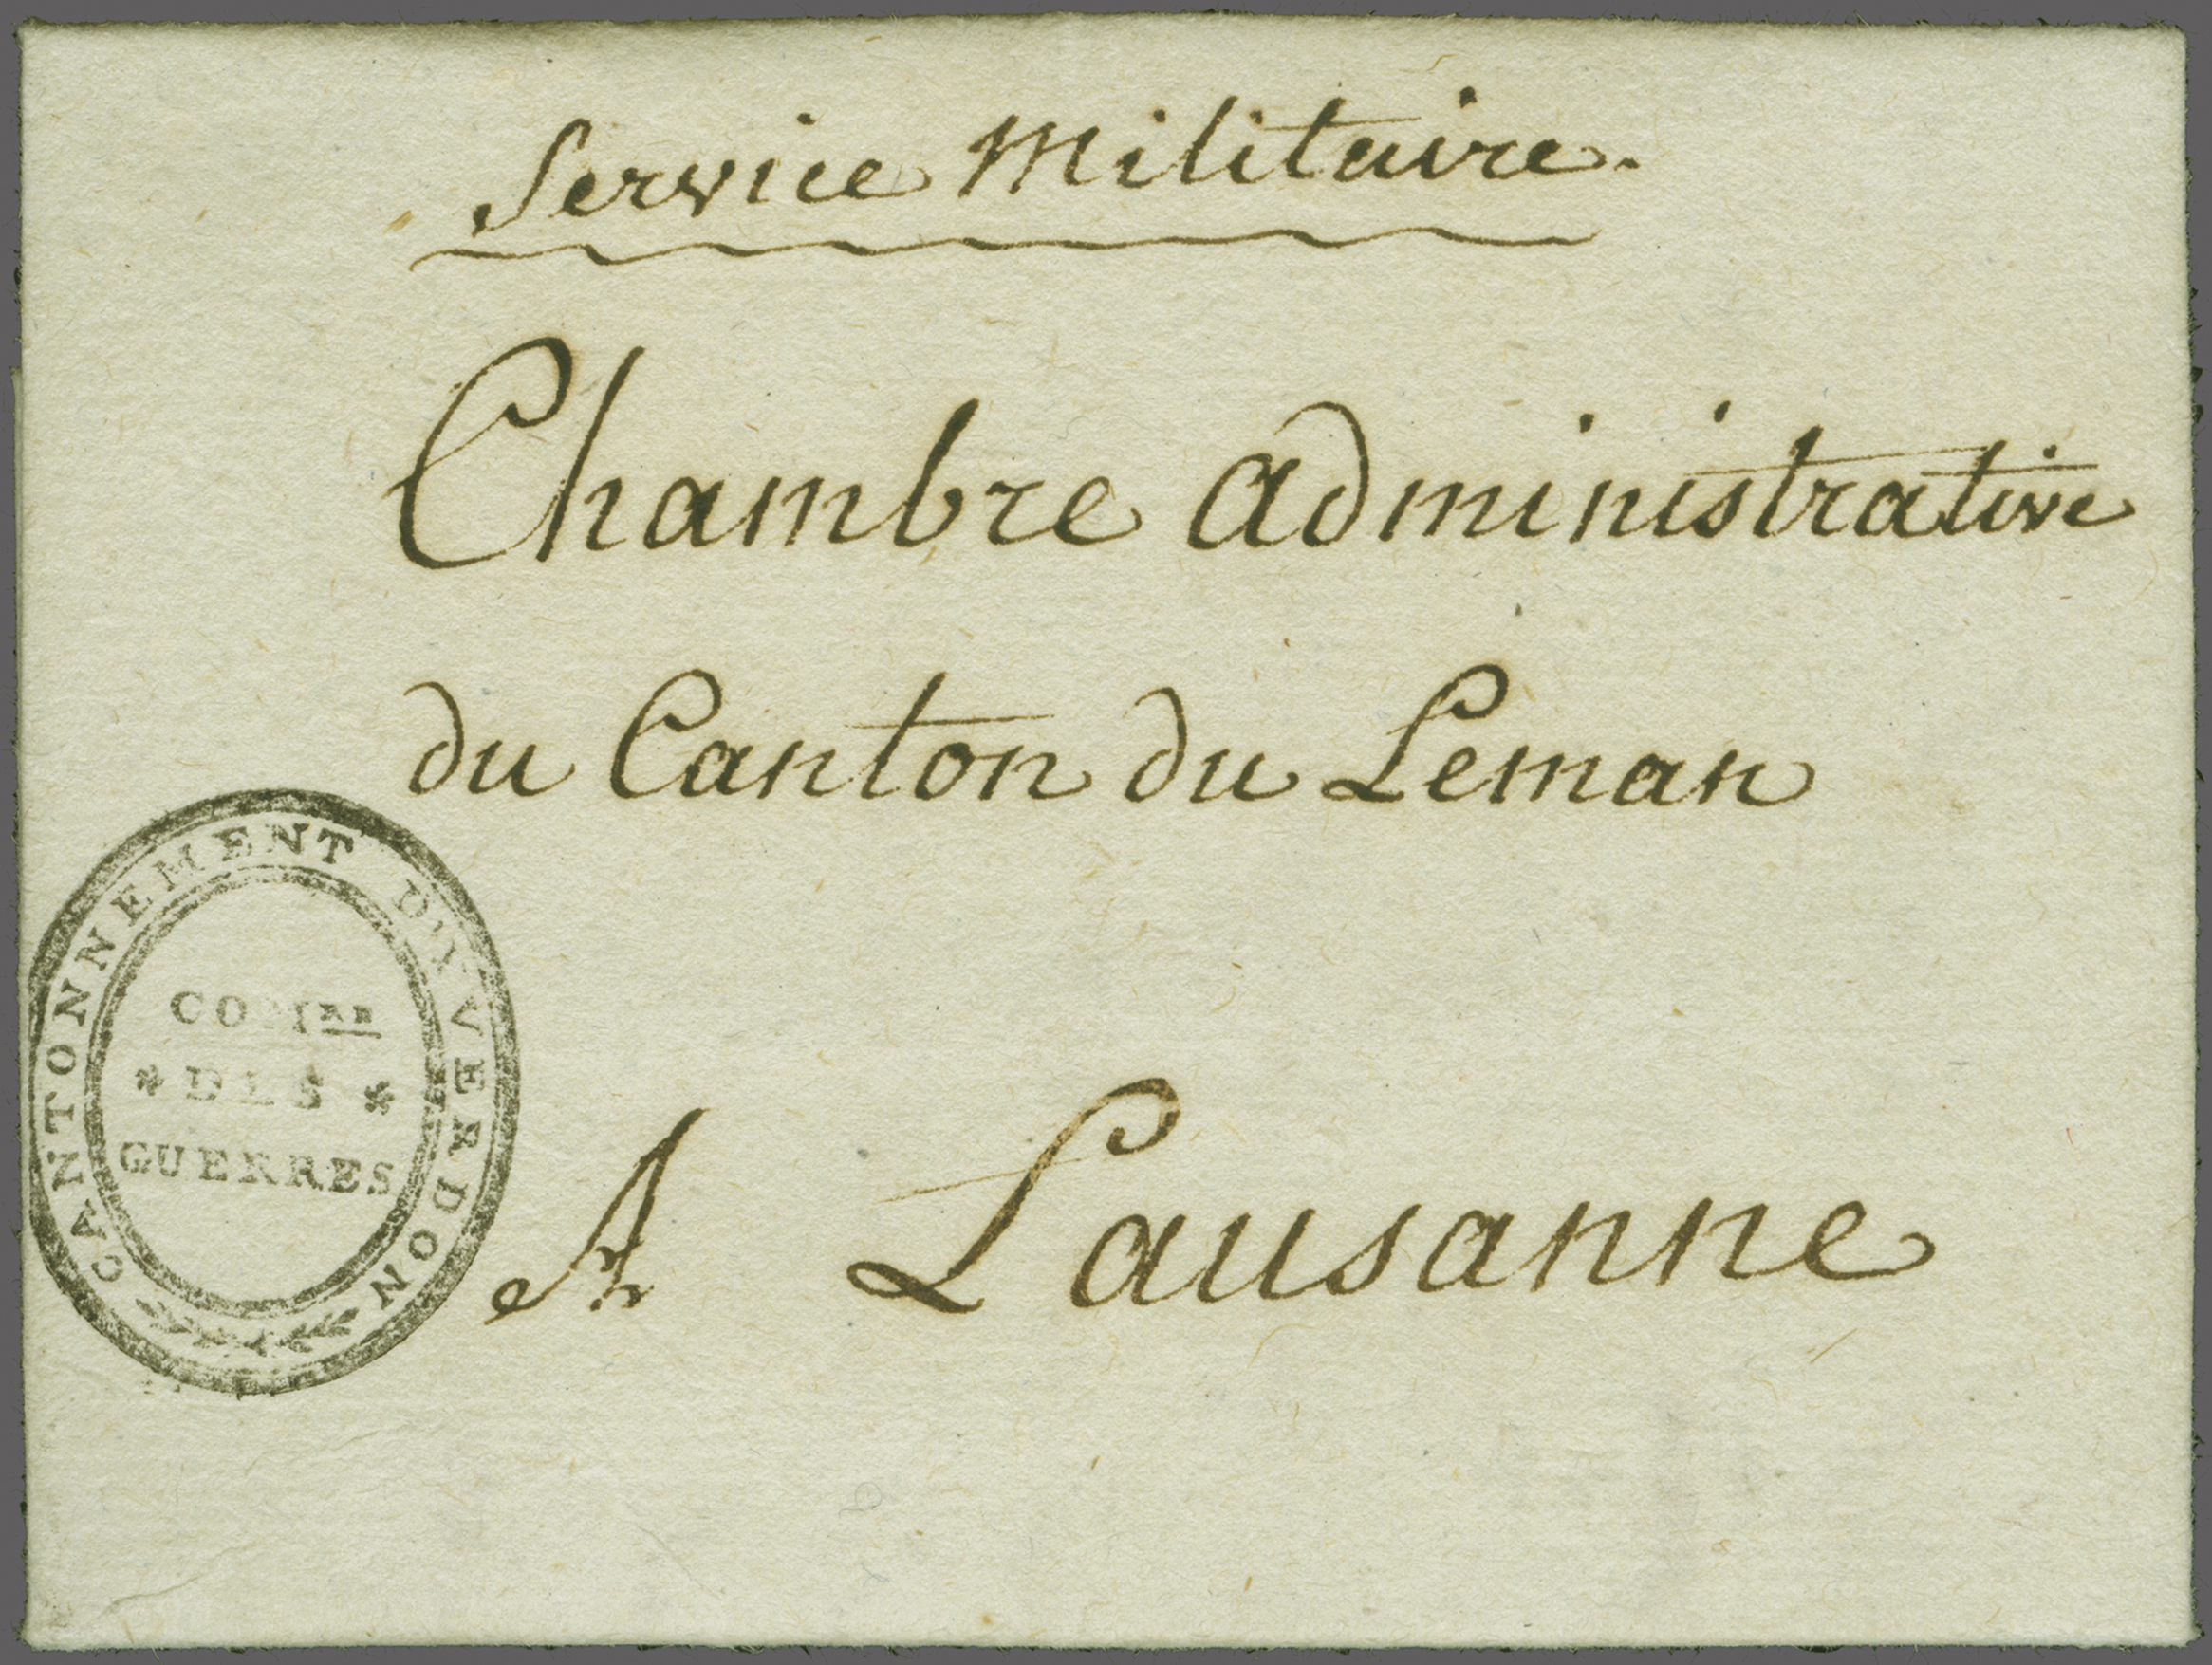 Service Militaire.
Chambre administrative
du Canton du Leman
A Lausanne
CANTONNEMENT D'YVERDON
COMRE
* DES *
GUERRES